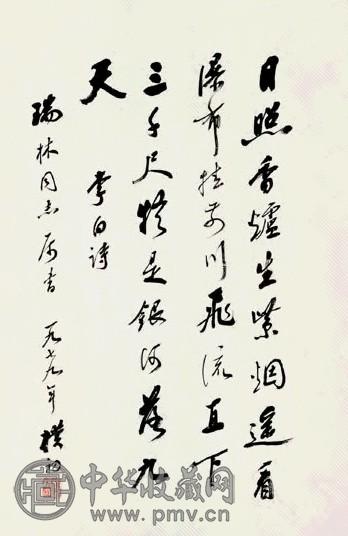 日照香爐生紫烟遙看
瀑布挂前川飛流直下
三千尺疑是銀河落九
天
李白詩
瑞林同志属書 一九七九年 樸初
中华收藏网
www.pmv.cn